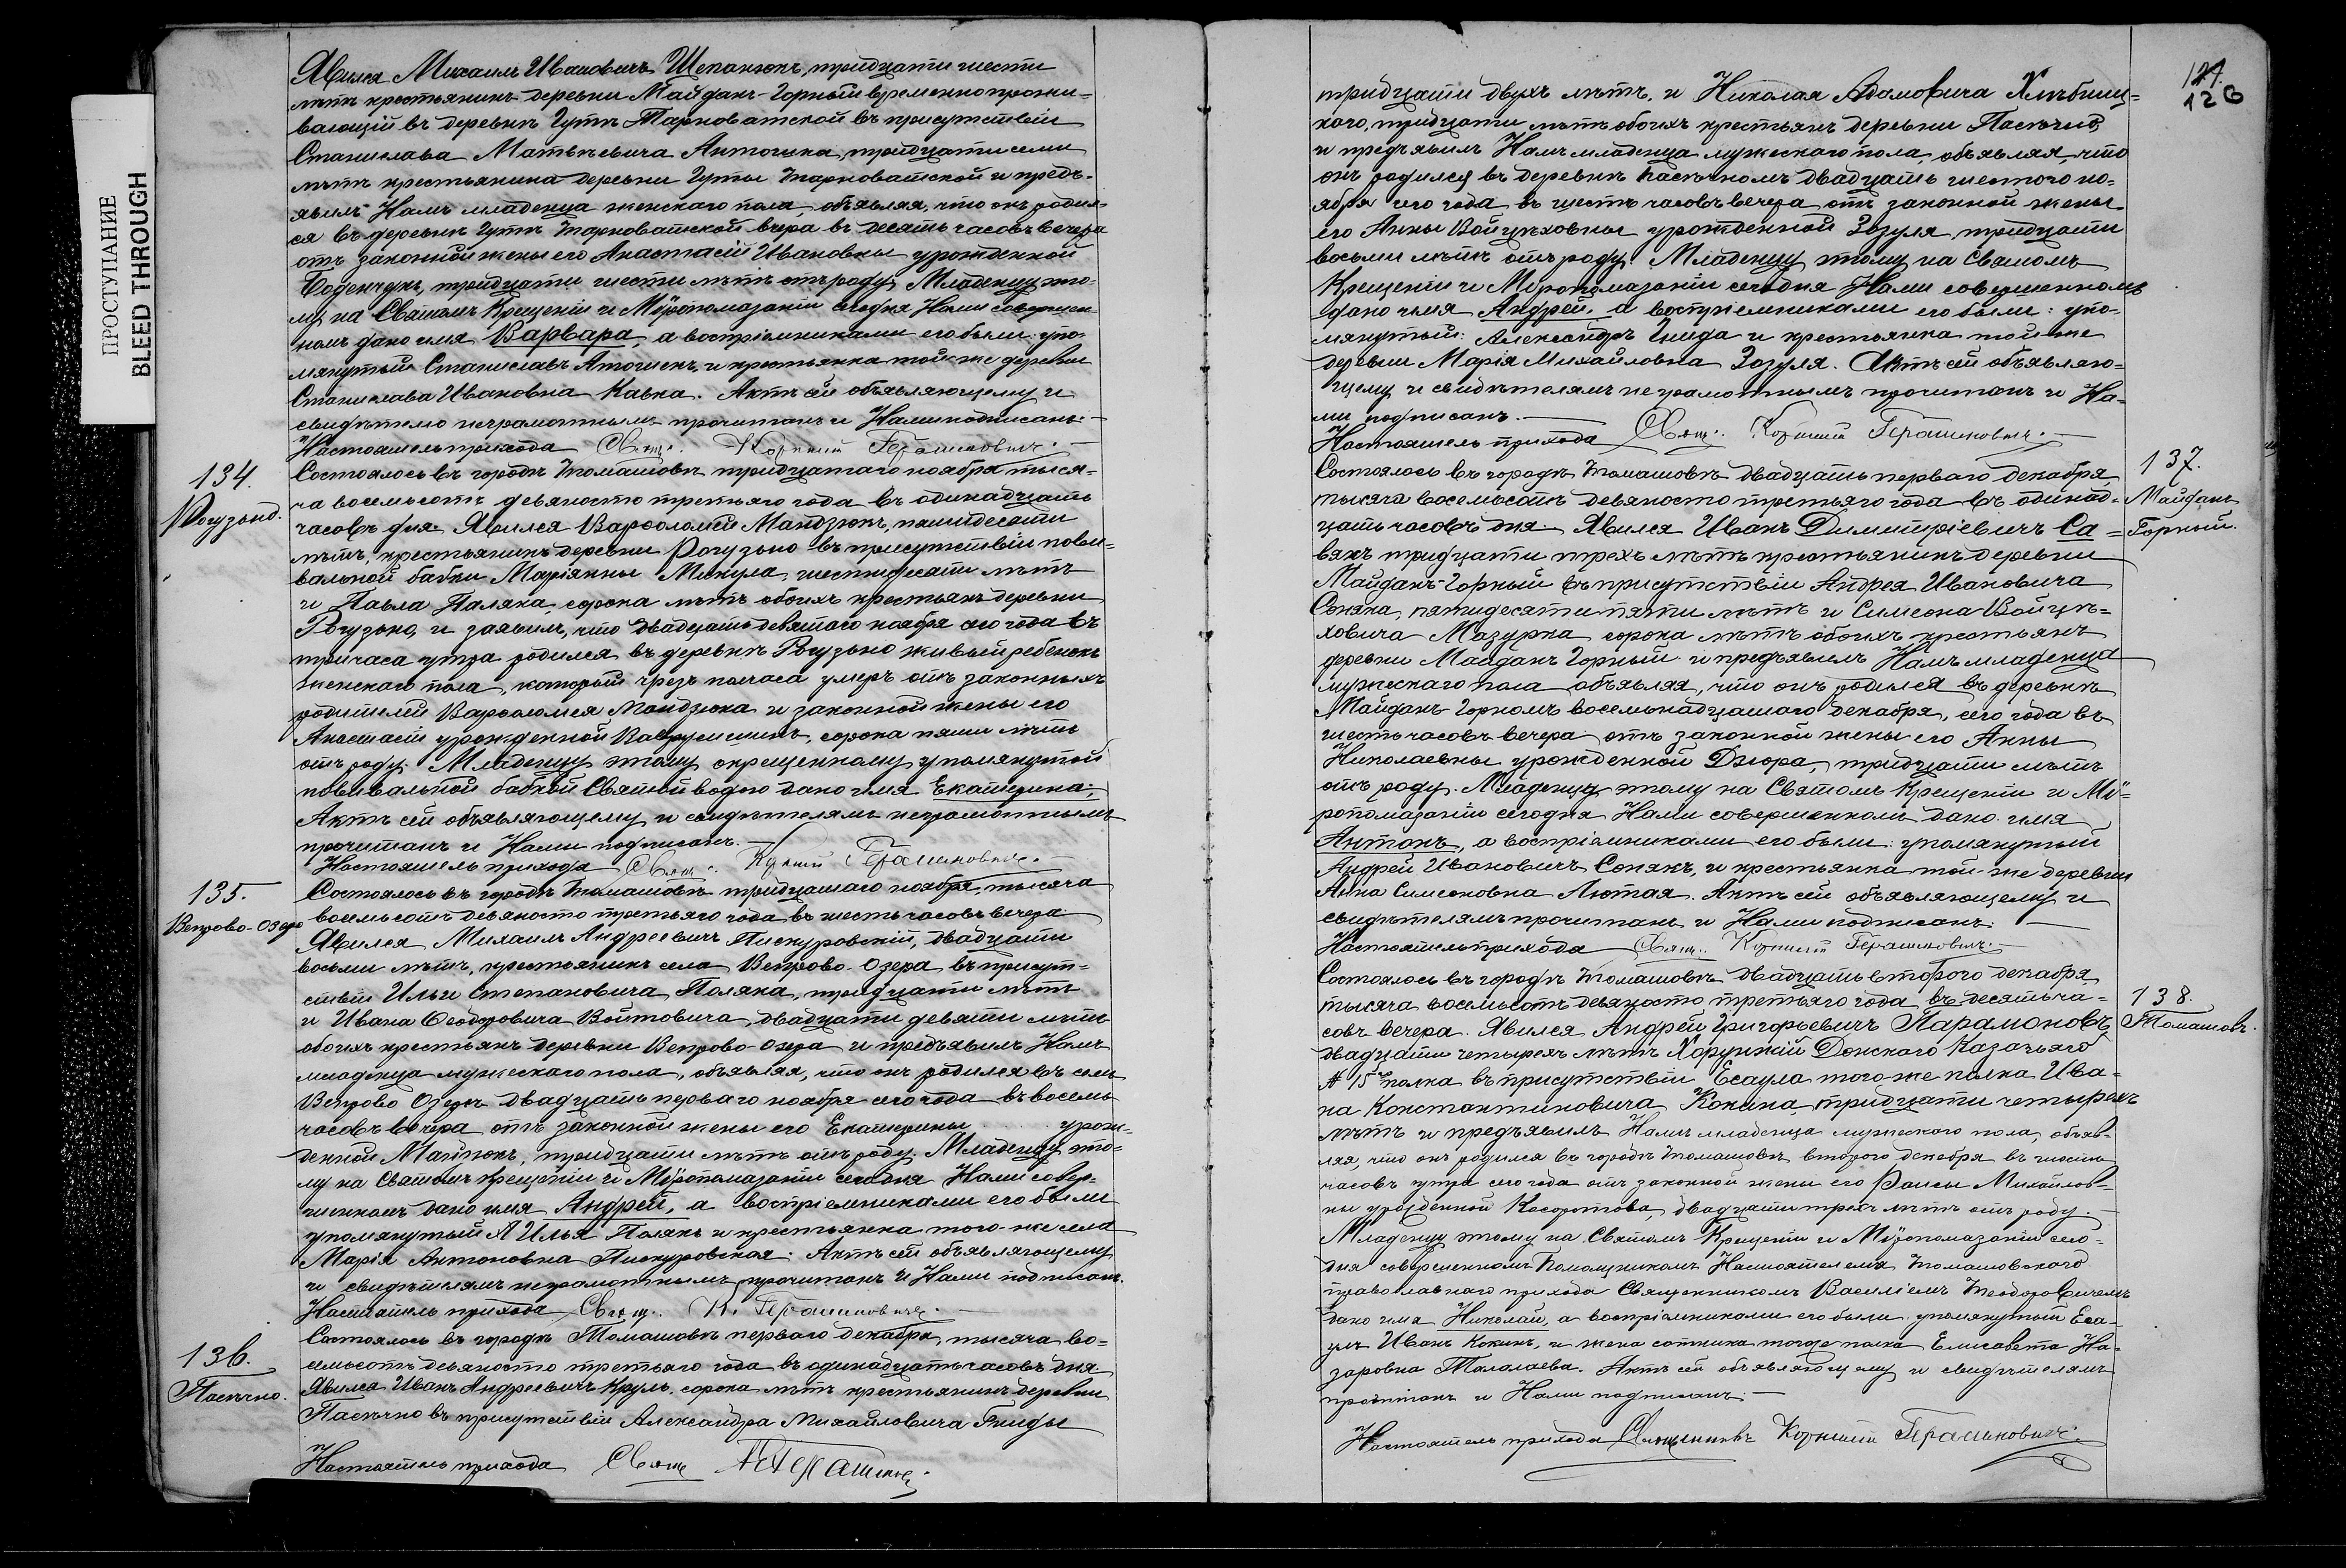 ПРОСТУПАНИЕ
BLEED THROUGH
Явился Михаилъ Ивановичъ Щепанюкъ, тридцати шести
лѣтъ крестьянинъ деревни Майданъ-Горный временно прожи-
вающій въ деревнѣ Гутѣ Тарноватской въ присутствіи
Станислава Матвѣевича Антошка, тридцати семи
лѣтъ крестьянина деревни Гуты Тарноватской и предъ-
явилъ Намъ младенца женскаго пола, объявляя, что онъ родил-
ся въ деревнѣ Гутѣ Тарноватской вчера въ десять часовъ вечера
отъ законной жены его Анастасіи Ивановны урожденной
тридцати шести лѣтъ отъ роду. Младенцу это-
му на Святомъ Крещеніи и Мѵропомазаніи сегодня Нами совершен-
номъ дано имя Варвара, а воспріемниками его были: упо-
мянутый Станиславъ и крестьянка той же деревни
Станислава Ивановна Кавка. Актъ сей объявляющему и
свидѣтелю неграмотнымъ прочитанъ и Нами подписанъ. —
Настоятель прихода Свящ. Корнилій Герашкович. —
134.
Рогузно.
Состоялось въ городѣ Томашовѣ тридцатаго ноября тыся-
ча восемьсотъ девяносто третьяго года въ одинадцать
часовъ дня. Явился Варѳоломей Мандзюкъ, пятидесяти
лѣтъ, крестьянинъ деревни Рогузно въ присутствіи повы-
вальной бабки Маріянны Микула, шестидесяти лѣтъ
и Павла Паляка, сорока лѣтъ обоихъ крестьянъ деревни
Рогузно, и заявилъ, что двадцать девятаго ноября сего года въ
три часа утра родился въ деревнѣ Рогузно живый ребенокъ
женскаго пола, который чрезъ полчаса умеръ отъ законныхъ
родителей Варѳоломея Мандзюка и законной жены его
Анастасіи урожденной сорока пяти лѣтъ
отъ роду. Младенцу этому окрещенному упомянутой
повивальной бабкой Святой водою дано имя Екатерина;
Актъ сей объявляющему и свидѣтелямъ неграмотнымъ
прочитанъ и Нами подписанъ. —
Настоятель прихода Свящ. Корнилій Герашкович. —
135.
Вепрово-Озеро
Состоялось въ городѣ Томашовѣ тридцатаго ноября, тысяча
восемьсотъ девяносто третьяго года въ шесть часовъ вечера.
Явился Михаилъ Андреевичъ Пискуровскій, двадцати
восьми лѣтъ, крестьянинъ села Вепрово-Озера въ присут-
ствіи Ильи Степановича Поляка, тридцати лѣтъ
и Ивана Ѳеодоровича Войтовича, двадцати девяти лѣтъ
обоихъ крестьянъ деревни Вепрово-Озера и предъявилъ Намъ
младенца мужескаго пола, объявляя, что онъ родился въ селѣ
Вепрово Озерѣ двадцать перваго ноября сего года въ восемь
часовъ вечера отъ законной жены его Екатерины урож-
денной тридцати лѣтъ отъ роду. Младенцу это-
му на Святомъ Крещеніи и Мѵропомазаніи сегодня Нами совер-
шенномъ дано имя Андрей, а воспріемниками его были
упомянутый Илья Полякъ и крестьянка того-же села
Марія Антоновна Пискуровская. Актъ сей объявляющему
и свидѣтелямъ неграмотнымъ прочитанъ и Нами подписанъ.
Настоятель прихода Свящ. К. Герашкович. —
136.
Пасѣчно.
Состоялось въ городѣ Томашовѣ перваго декабря, тысяча во-
семьсотъ девяносто третьяго года въ одинадцать часовъ дня.
Явился Иванъ Андреевичъ Круль, сорока лѣтъ крестьянинъ деревни
Пасѣчно въ присутствіи Александра Михайловича Гниды
Настоятель прихода Свящ.
127.
126
тридцати двухъ лѣтъ, и Николая Адамовича Хлѣбниц-
каго, тридцати лѣтъ обоихъ крестьянъ деревни Пасѣчно
и предъявилъ Намъ младенца мужескаго пола, объявляя, что
онъ родился въ деревнѣ Пасѣчномъ двадцать шестого но-
ября сего года въ шесть часовъ вечера отъ законной жены
его Анны Войцѣховны урожденной Зозуля, тридцати
восьми лѣтъ отъ роду. Младенцу этому на Святомъ
Крещеніи и Мѵропомазаніи сегодня Нами совершенномъ
дано имя Андрей, а воспріемниками его были: упо-
мянутый: Александръ Гнида и крестьянка той же
деревни Марія Михайловна Зозуля. Актъ сей объявляю-
щему и свидѣтелямъ неграмотнымъ прочитанъ и На-
ми подписанъ. —
Настоятель прихода Свящ. Корнилій Герашкович. —
137.
Майданъ
Горный.
Состоялось въ городѣ Томашовѣ двадцать перваго декабря
тысяча восемьсотъ девяносто третьяго года въ одинад-
цать часовъ дня. Явился Иванъ Димитріевичъ Са-
вякъ тридцати трехъ лѣтъ крестьянинъ деревни
Майданъ-Горный въ присутствіи Андрея Ивановича
Соняка, пятидесяти пяти лѣтъ и Симеона Войцѣ-
ховича Мазурка сорока лѣтъ обоихъ крестьянъ
деревни Майданъ Горный и предъявилъ Намъ младенца
мужескаго пола объявляя, что онъ родился въ деревнѣ
Майданъ-Горномъ восемьнадцатаго декабря, сего года въ
шесть часовъ вечера отъ законной жены его Анны
Николаевны урожденной Дзюра, тридцати лѣтъ
отъ роду. Младенцу этому на Святомъ Крещеніи и Мѵ-
ропомазаніи сегодня Нами совершенномъ дано имя
Антонъ, а воспріемниками его были: упомянутый
Андрей Ивановичъ Сонякъ, и крестьянка той-же деревни
Анна Симеоновна Лютая. Актъ сей объявляющему и
свидѣтелямъ прочитанъ и Нами подписанъ. —
Настоятель прихода Свящ. Корнилій Герашкович. —
138.
Томашовъ.
Состоялось въ городѣ Томашовѣ двадцать второго декабря
тысяча восемьсотъ девяносто третьяго года въ десять ча-
совъ вечера. Явился Андрей Григорьевичъ Парамоновъ,
двадцати четырехъ лѣтъ Хорунжій Донскаго Казачьяго
№ 15 полка въ присутствіи Есаула того-же полка Ива-
на Константиновича Кокина тридцати четырехъ
лѣтъ и предъявилъ Намъ младенца мужескаго пола, объяв-
ляя, что онъ родился въ городѣ Томашовѣ второго декабря въ шесть
часовъ утра сего года отъ законной жены его Раисы Михайлов-
ны урожденной Косоротова, двадцати трехъ лѣтъ отъ роду. —
Младенцу этому на Святомъ Крещеніи и Мѵропомазаніи сего-
дня совершенномъ Помощникомъ Настоятеля Томашовскаго
православнаго прихода Священникомъ Василіемъ Теодоровичемъ
дано имя Николай, а воспріемниками его были: упомянутый Еса-
улъ Иванъ Кокинъ, и жена сотника того же полка Елисавета На-
заровна Талалаева. Актъ сей объявляющему и свидѣтелямъ
прочитанъ и Нами подписанъ. —
Настоятель прихода Священникъ Корнилій Герашкович.